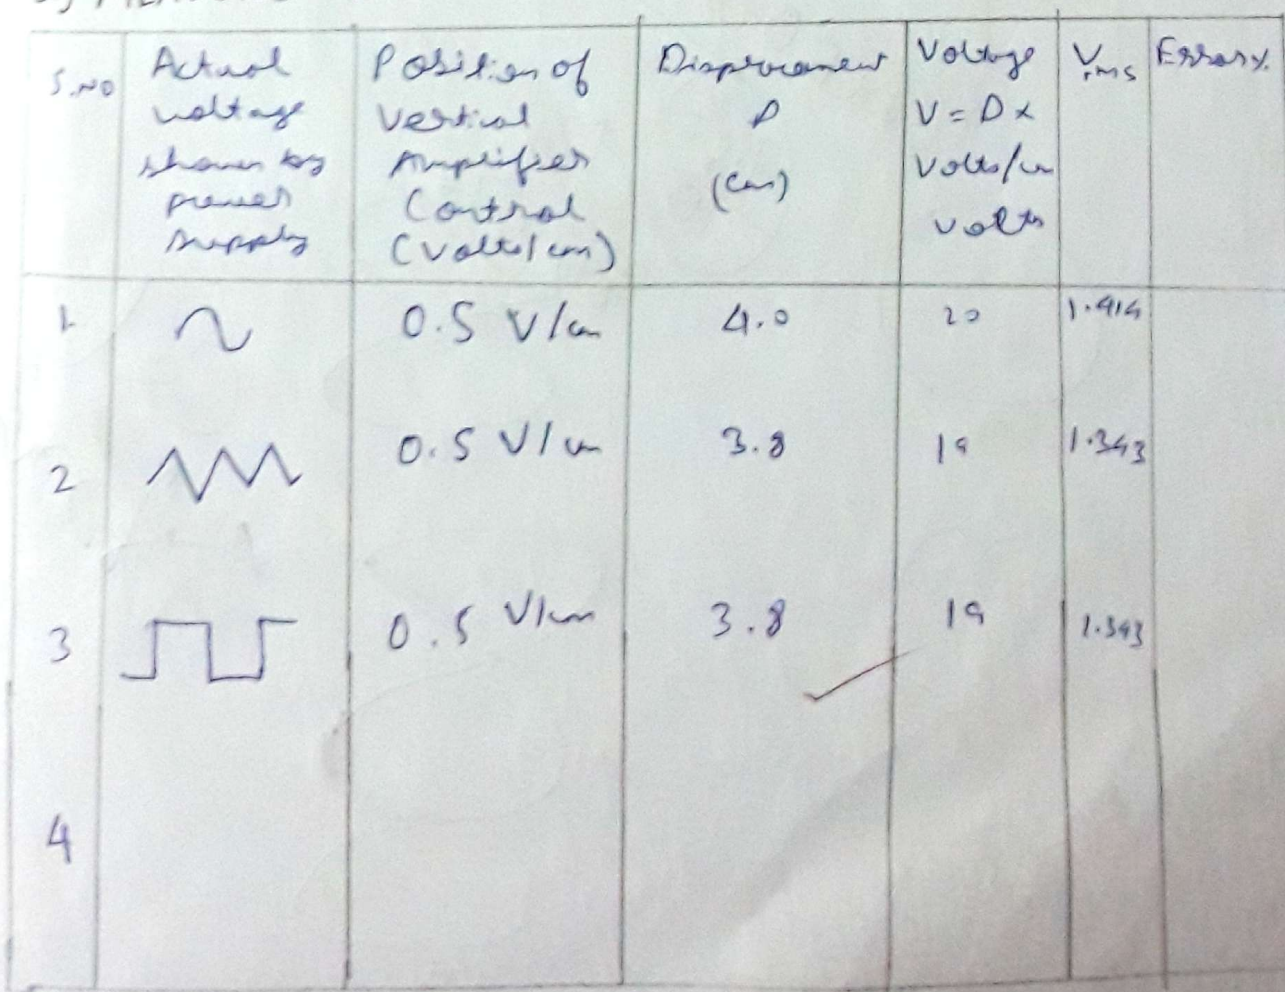 S.NO
Actual
voltage
shown by
power
supply
Position of
Vertical
Amplifier
Control
(Volts/cm)
Displacement
D
(cm)
Voltage
V = D x
Volts/cm
volts
Vrms
Error%
1 0.5 V/cm 4.0 20 1.414
2 0.5 V/cm 3.8 19 1.343
3 0.5 V/cm 3.8 19 1.343
4